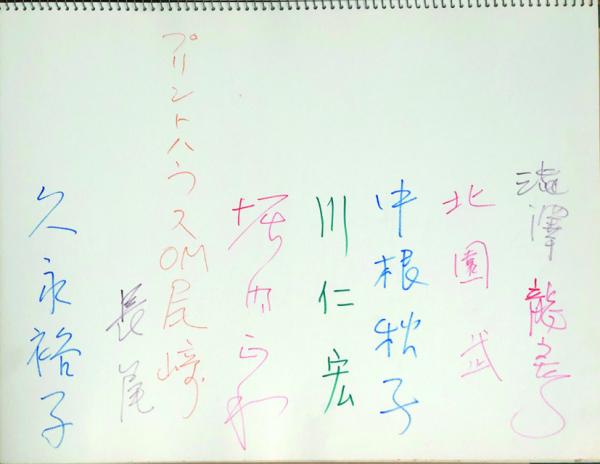 澁澤龍彦
北園武
中根秋子
川仁宏
堀内
プリントハウスOM尾崎
長尾
久永裕子